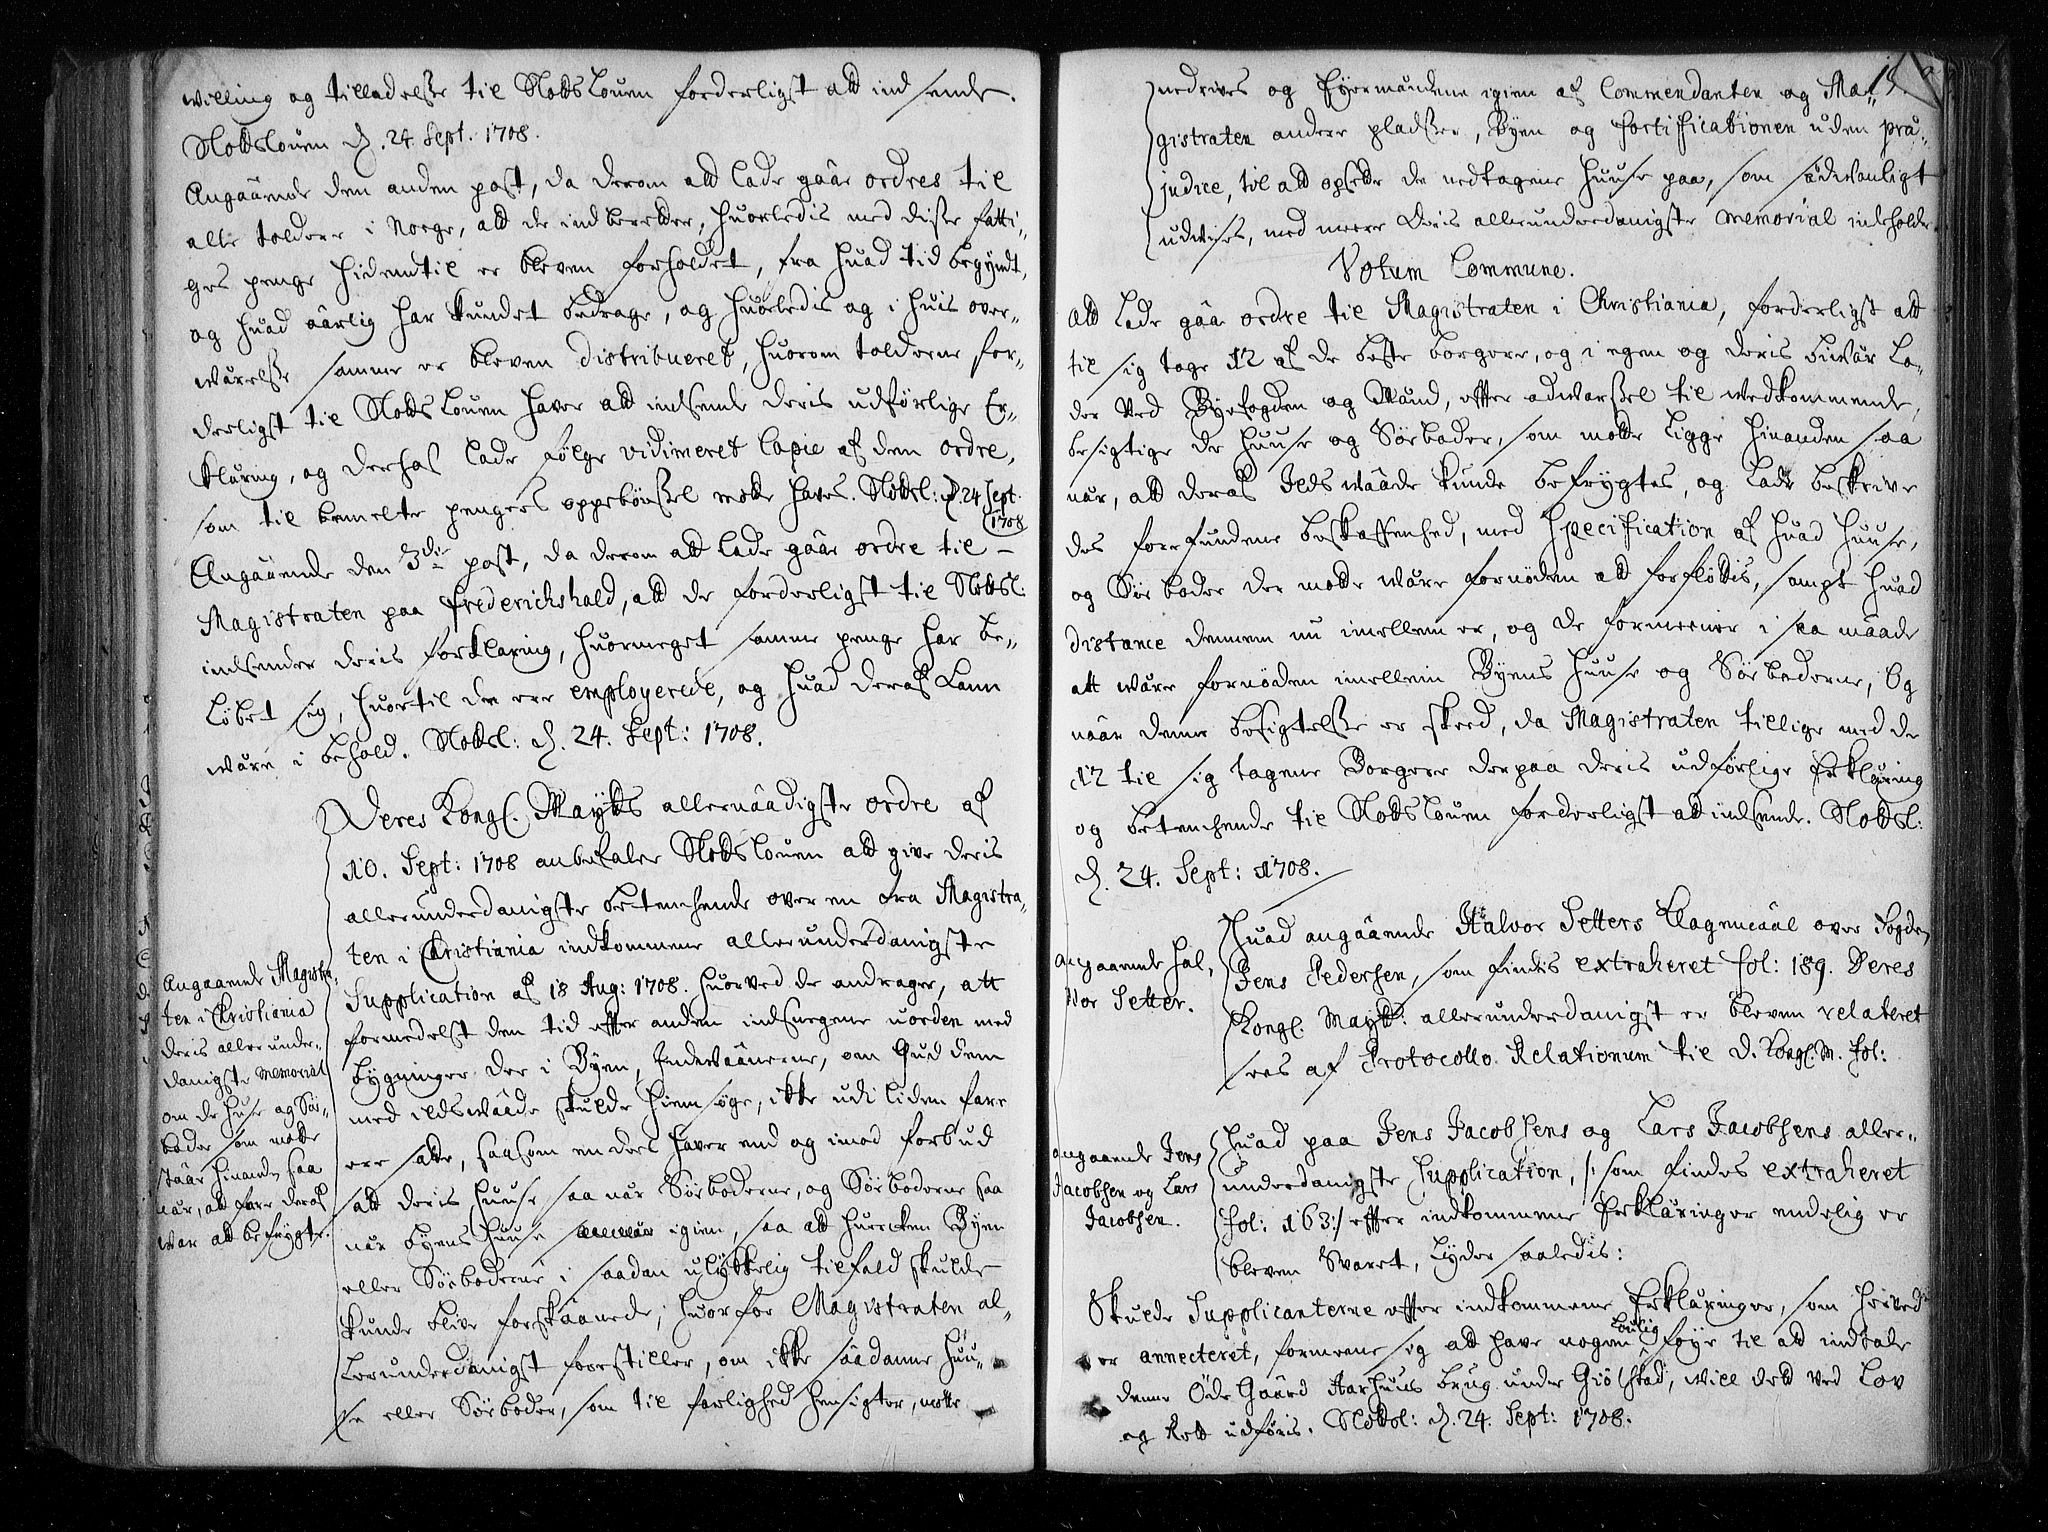 willing og tilladelsse til Slotts Louen forderligst att ind sende.
Slottslouen d. 24. Sept. 1708.
Angaäende den anden post, da derom att lade gaäe ordres til
alle toldere i Norge, att de indberetter, huorledis med disse fatti,,
ges penge hidindtil er bleven forholdet, fra huad tid begyndt,
og huad aärlig har kundet bedrage, og huorledis og i huis over,,
wärelsse samme er bleven distribueret, huorom tolderne for,,
derligst til Slotts Louen haver att indsende deris udførlige Er,,
klaring, og derhos lade følge vidimeret Copie af den ordre,
som til bemelte pengers oppebörssel motte haves. Slottsl: d. 24 Sept.
1708
Angaäende den 3die post, da derom att lade gaäe ordre til –
Magistraten paa Frederichshald, att de forderligst til Slottsl:
indsender deris forklaring, huormeget samme penge har be,,
løbet sig, huortil de ere employerede, og huad deraf kann
wäre i behold. Slottsl: d. 24. Sept: 1708.
Deres Kongl. Maytts allernaädigste ordre af
10. Sept: 1708 anbefaler Slotts Louen att give deris
allerunderdanigste betenchende over en fra Magistra,
ten i Christiania indkommene allerunderdanigste
Supplication af 18 Aug: 1708. huorved de andrager, att
formedelst den tid effter anden indsnegene uorden med
bygninger der i Byen, Indwaänerne, om Gud dem
med ildswaäde skulde hiemsøge, ikke udi liden fare
ere satte, saasom endeel haver end og imod forbud
satt deris huuse saa när Söeboderne, og Söeboderne saa
när byens huuse igien, saa att huercken Byen
eller Söeboderne i saadan ulykkelig tilfald skulde
kunde blive forskaänede; huorfor Magistraten al,,
lerunderdanigst forestiller, om ikke saädanne huu,,
se eller Söeboder, som til farlighed hensigter, motte
Angaaende Magistra,
ten i Christiania
deris allerunder,,
danigste Memorial
om de huse og Söe,,
boder som motte
staär hinanden saa
när, att fare deraf
war att befrygte.
18
nedrives og Eyermändene igien af Commendanten og Ma,,
gistraten andre pladsser, Byen og fortifficationen uden præ,,
judice, til att opsette de nedtagene huuse paa, som sädwanligt
udvises, med mere deris allerunderdanigste memorial indeholder.
Votum Commune.
Att lade gaäe ordre til Magistraten i Christiania, forderligst att
til sig tage 12 af de beste borgere, og i egen og deris biwär la,,
der Ved Byefogden og Mänd, effter adwarssel til wedkommende,
besigtige de huuse og Söeboder, som motte ligge hinanden saa
när, att deraf Ildswaäde kunde befrygtes, og lade beskrive
des forefundene beskaffenhed, med Specification af huad huuse,
og Söe boder der motte wäre fornöden att forfløttis, sampt huad
distance dennem nu imellem er, og de formeener i saa maade
att wäre fornöden imellem Byens huuse og Söeboderne, Og
naär denne besigtelsse er skeed, da Magistraten tillige med de
12 til sig tagene Borgere derpaa deris udførlige Erkläring
og betenchende til Slotts Louen forderligst att indsende. Slottsl:
d. 24. Sept: 1708.
angaaende Hal,
vor Setter.
Huad angaäende Halvor Setters Klagemaäl over Fogden
Jens Pedersen, som findes extraheret fol: 189. Deres
Kongl. Maytt: allerunderdanigst er bleven relateret
sees af Protocollo Relationum til D. Kongl. M. fol:
angaaende Jens
Jacobsen og Lars
Jacobsen.
Huad paa Jens Jacobsens og Lars Jacobsens aller,,
underdanigste Supplication, /: som findes extraheret
fol: 163 :/ effter indkommene Erkläringer endelig er
bleven Svaret, Lyder saaledis:
Skulde Supplicanterne effter indkommene Erkläringer, som herved
er annecteret, formeene sig att have nogen Loulig føye til att indtale
denne Öde Gaard Aarhuus brug under Giölstad, will dett ved Lov
og Rett udføris. Slottsl: d. 24. Sept: 1708.